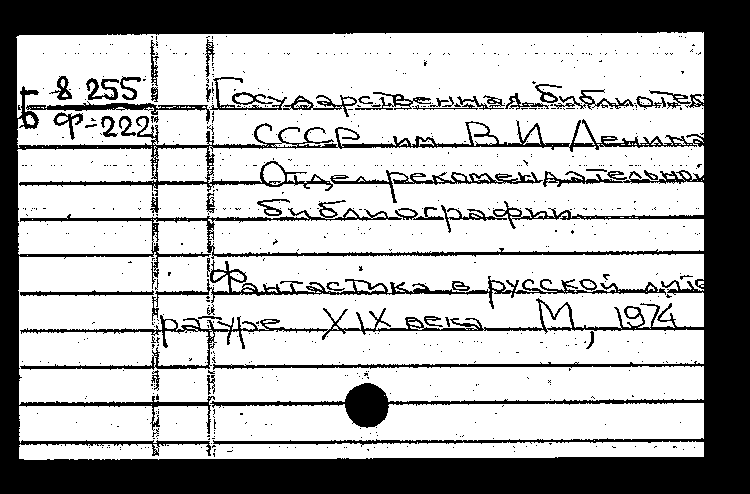 Б 8 255
Ф-222
Государственная библиотек
СССР им. В.И. Ленина
Отдел рекомендательной
библиографии.
Фантастика в русской лите
ратуре XIX века М., 1974